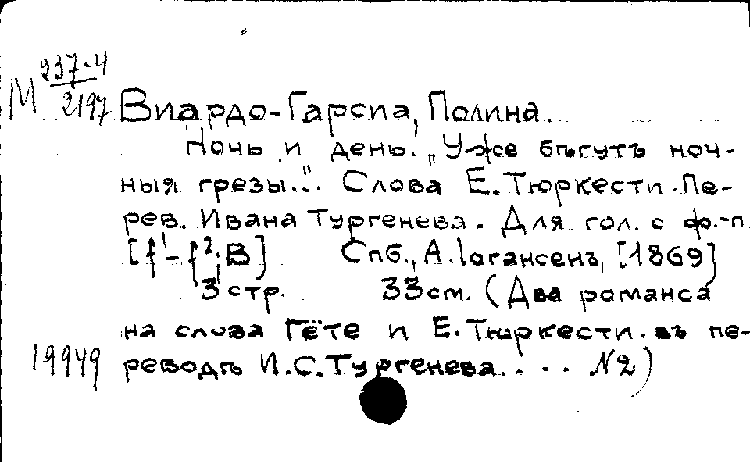 М 237-4
2197
Виардо-Гарсиа, Полина.
Ночь и день. „Уже бѣгутъ ноч-
ныя грезы...". Слова Е. Тюркести. Пе-
рев. Ивана Тургенева. Для гол. с ф.-п.
[f¹-f²; B] Спб., А. Іогансенъ, [1869]
3 стр. 33 см. (Два романса
на слова Гёте и Е. Тюркести. въ пе-
19949 реводѣ И.С. Тургенева. . . . №2)